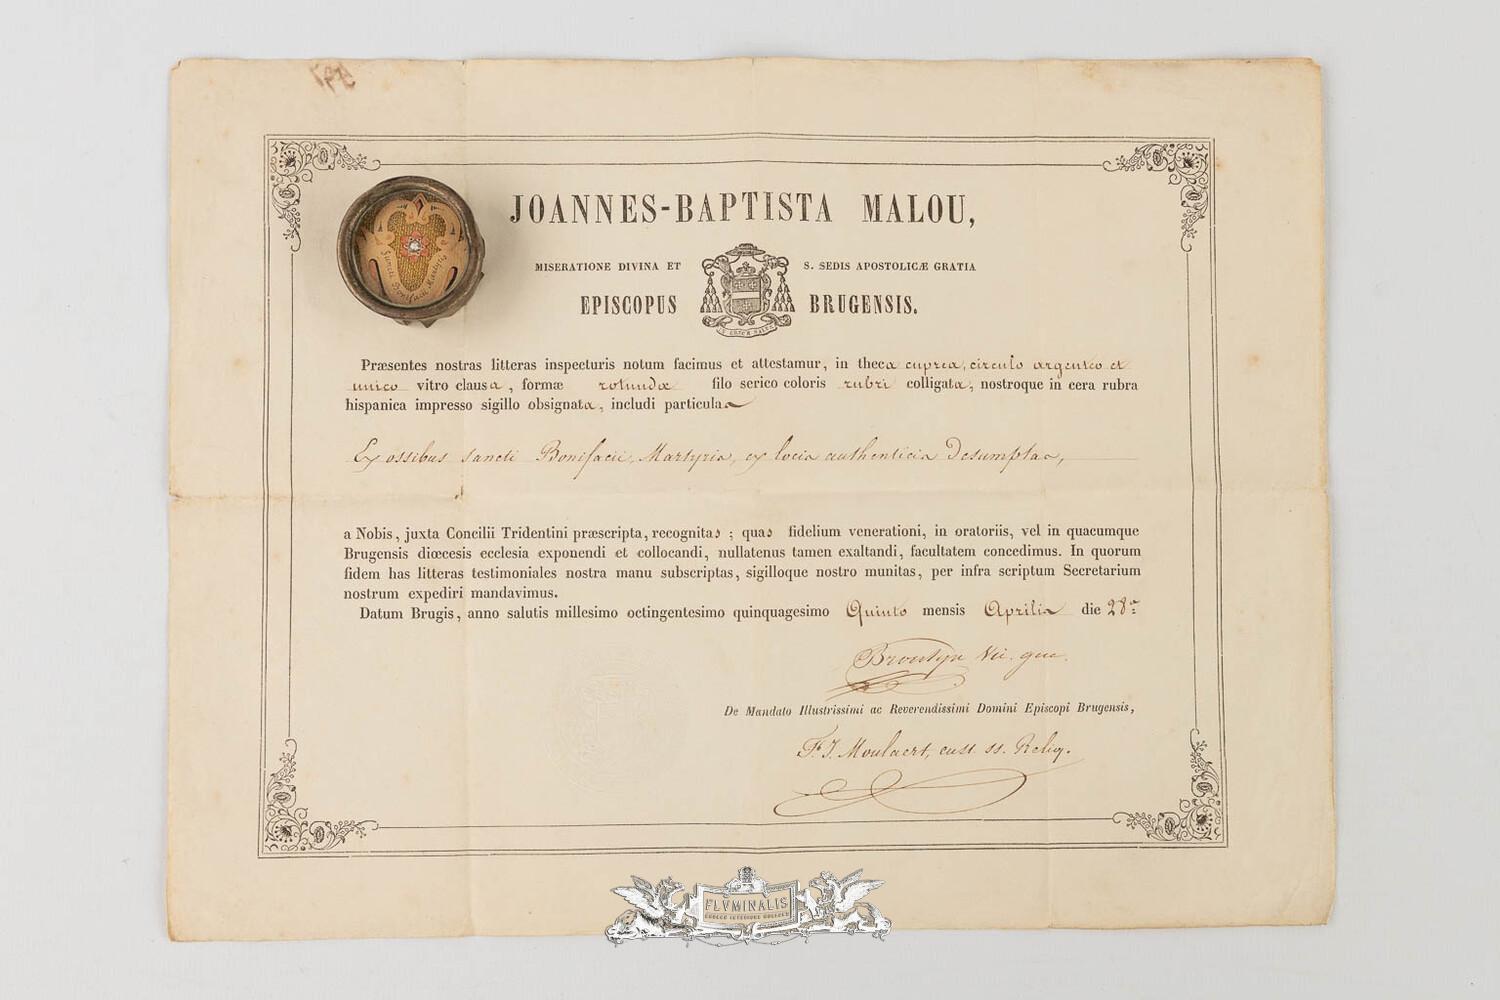 397
JOANNES-BAPTISTA MALOU,
MISERATIONE DIVINA ET S. SEDIS APOSTOLICÆ GRATIA
EPISCOPUS BRUGENSIS.
Sancti Bonifacii Martyris
Præsentes nostras litteras inspecturis notum facimus et attestamur, in theca cuprea, circulo argenteo et
unico vitro clausa, formæ rotundæ filo serico coloris rubri colligata, nostroque in cera rubra
hispanica impresso sigillo obsignata, includi particulas
Ex ossibus sancti Bonifacii, Martyris, ex locis authenticis desumptas,
a Nobis, juxta Concilii Tridentini præscripta, recognitas ; quas fidelium venerationi, in oratoriis, vel in quacumque
Brugensis diœcesis ecclesia exponendi et collocandi, nullatenus tamen exaltandi, facultatem concedimus. In quorum
fidem has litteras testimoniales nostra manu subscriptas, sigilloque nostro munitas, per infra scriptum Secretarium
nostrum expediri mandavimus.
Datum Brugis, anno salutis millesimo octingentesimo quinquagesimo Quinto mensis Aprilis die 28ª
Vic. gen.
De Mandato Illustrissimi ac Reverendissimi Domini Episcopi Brugensis,
F. J. Moulaert, cust. ss. Reliq.
FLVMINALIS